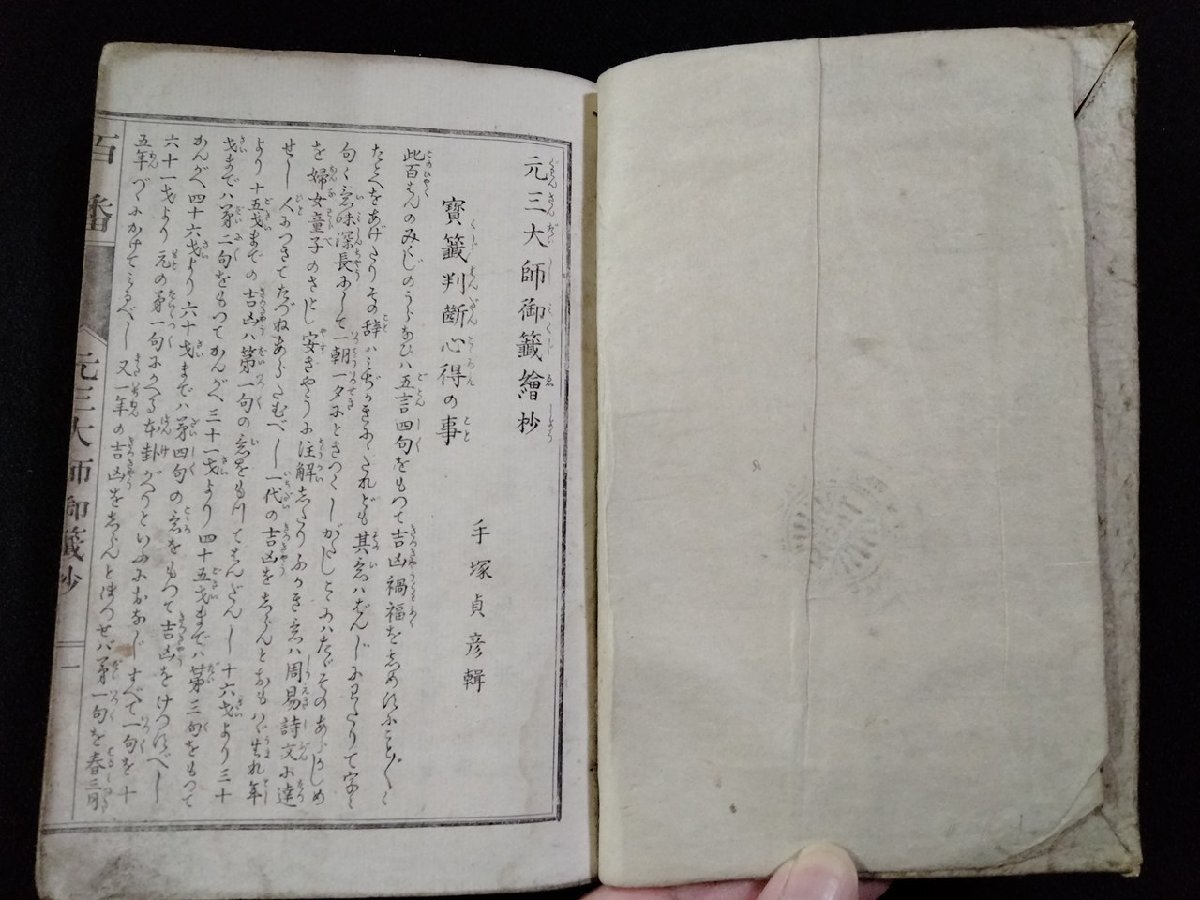 元三大師御籤繪抄
手塚貞彦輯
寳籤判斷心得の事
此百ばんのみくじのうらなひハ五言四句をもつて吉凶禍福を
たとへをあげたりその辞ハみぢかきに似たれども其意ハ
句く意味深長にして一朝一夕に
を婦女童子のさとし安きやうに注解したりふかき意ハ周易詩文に達
せし人につきてたづねあらたむべし一代の吉凶をしらんとおもハゞ生れ年
より十五才までの吉凶ハ第一句の意をもつてはんだんし十六才より三十
才までハ第二句をもつてかんがへ三十一才より四十五才までハ第三句をもつて
かんがへ四十六才より六十才までハ第四句の意をもつて吉凶をけつすべし
六十一才より元の第一句にかへる本卦がへりといふにおなじすべて一句を十
五年づゝにかけてみるべし又一年の吉凶をしらんと欲せバ第一句を春三月
百番
元三大師御籤抄
一